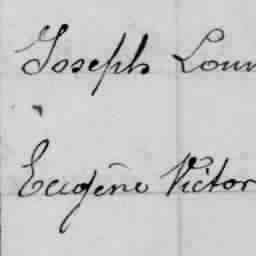 Joseph Loui
Eugène Victor